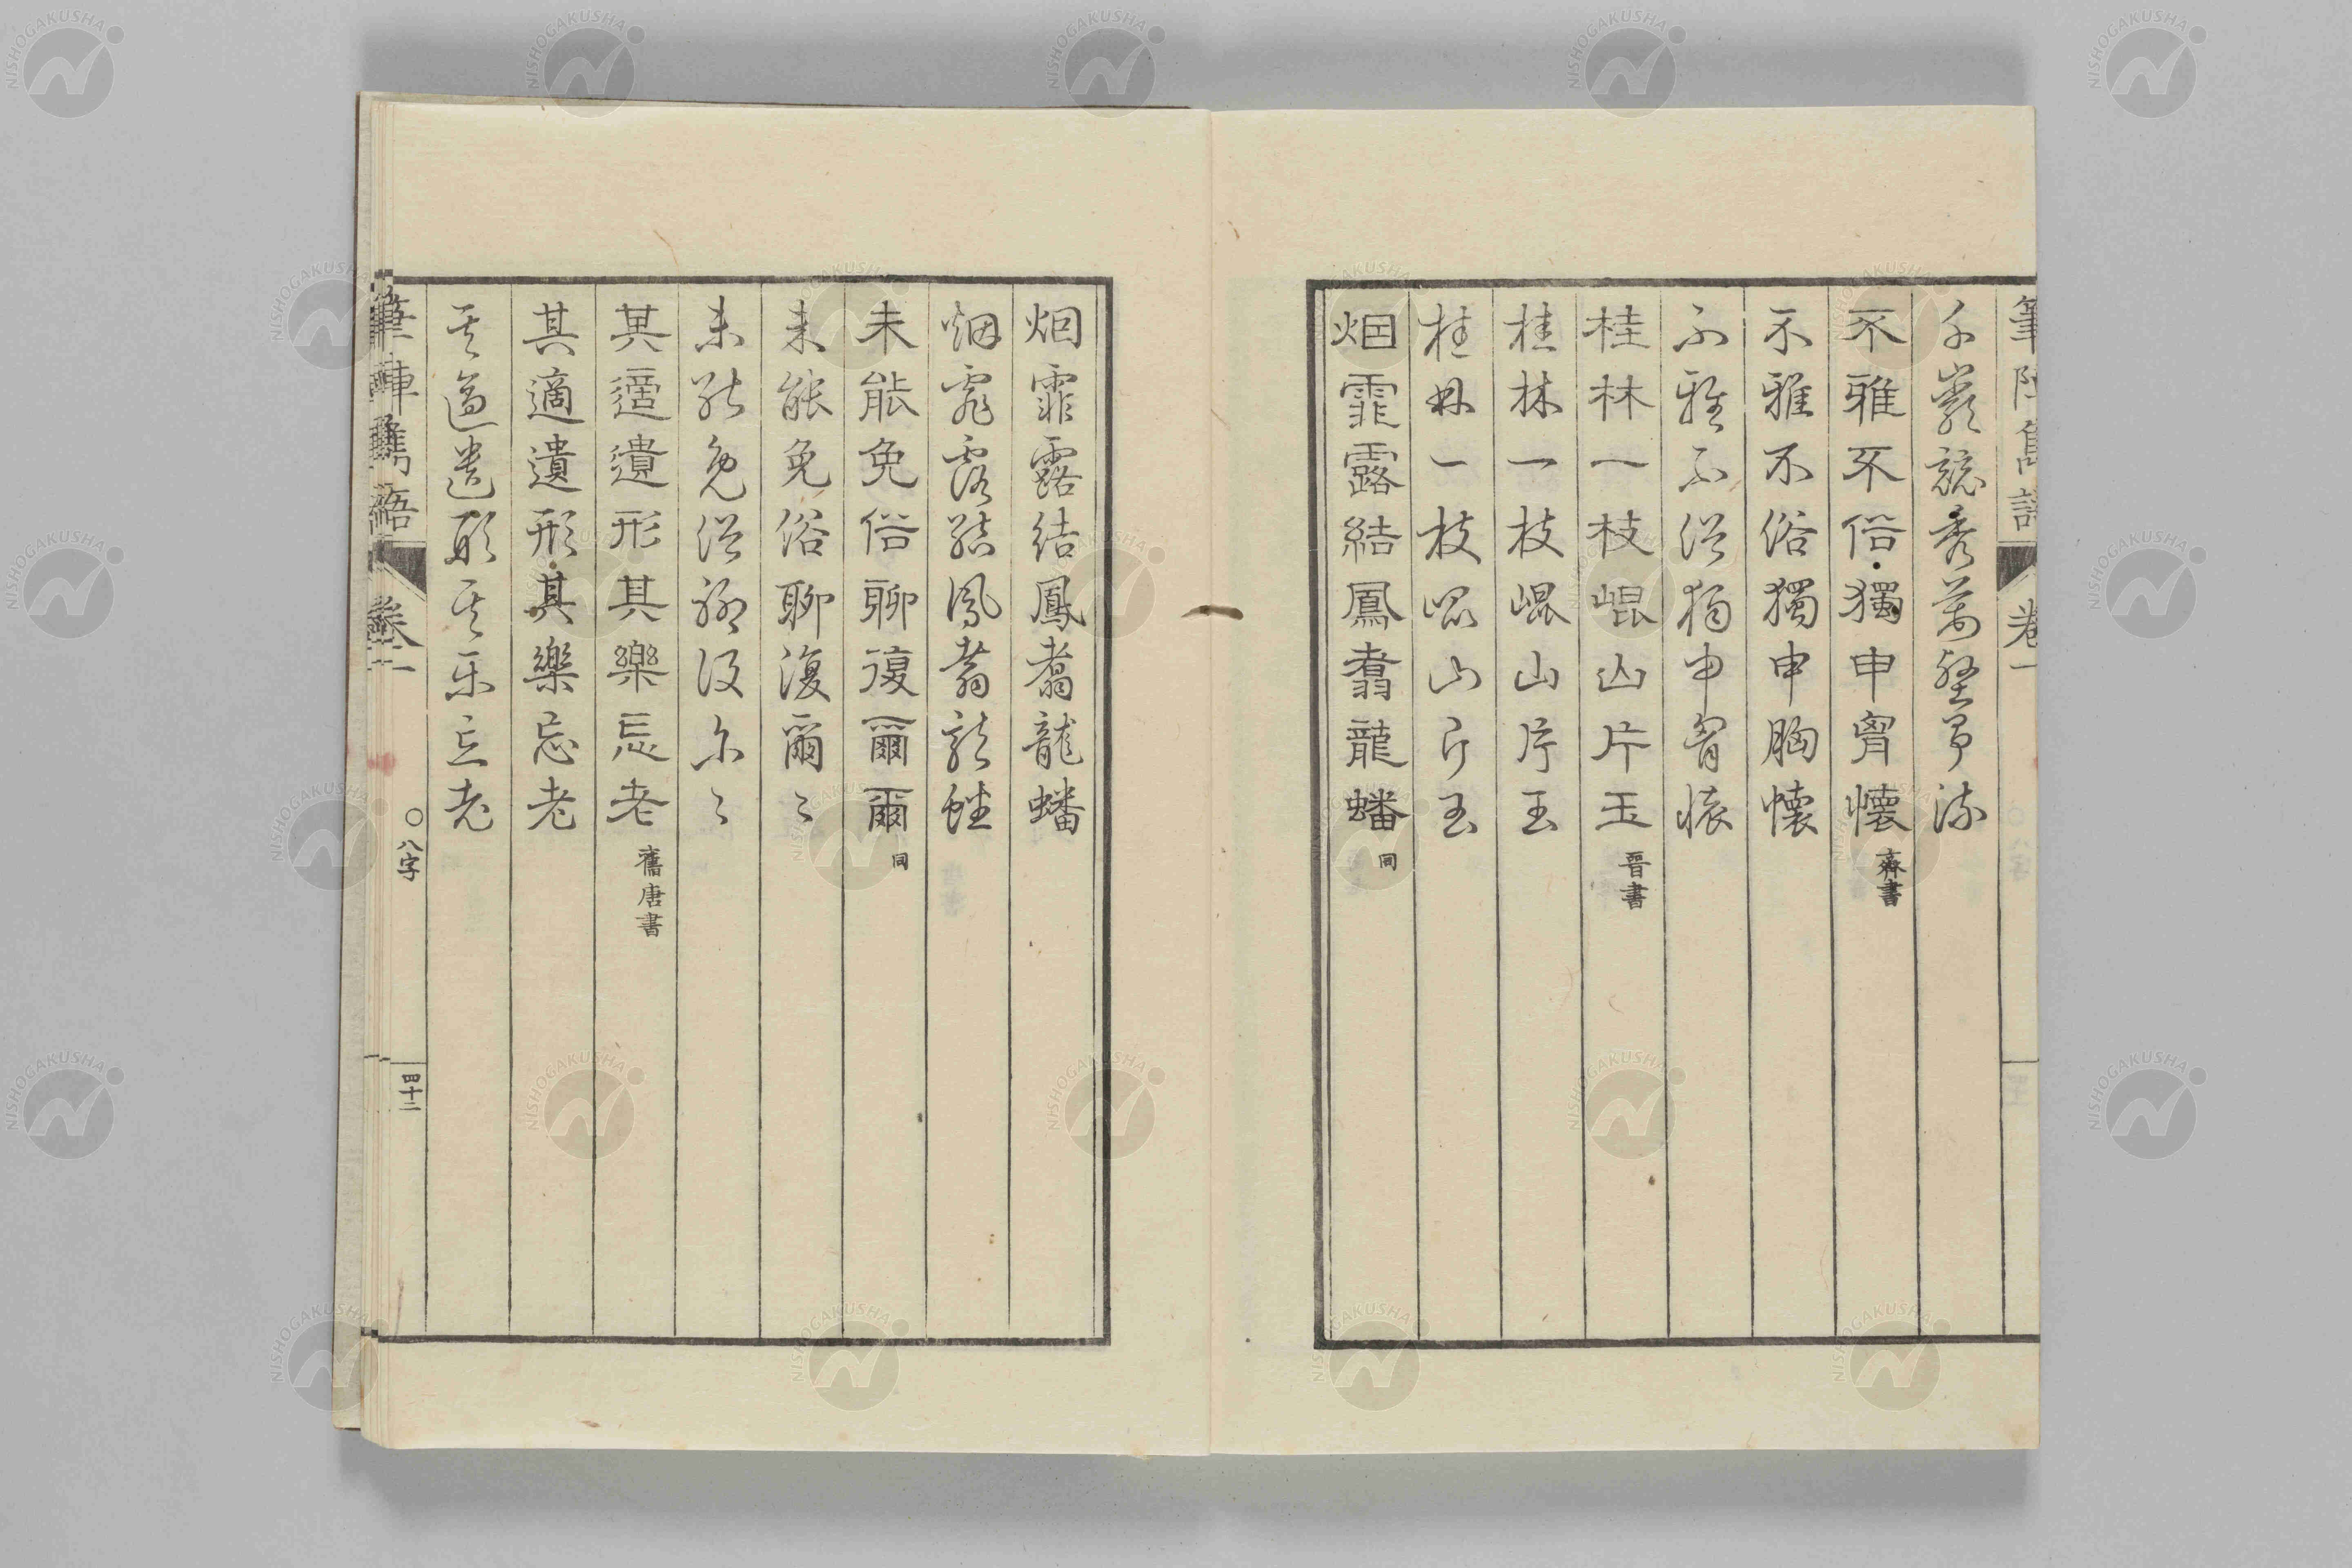 筆陣雋語 卷一
千巖競秀萬壑爭流
不雅不俗獨申胷懷 齊書
不雅不俗獨申胸懷
不雅不俗獨申胷懷
桂林一枝崐山片玉 晉書
桂林一枝崐山片玉
桂林一枝崐山片玉
烟霏露結鳳翥龍蟠 同
烟霏露結鳳翥龍蟠
烟霏露結鳳翥龍蟠
未能免俗聊復爾爾 同
未能免俗聊復爾〻
未能免俗聊復尔〻
其適遺形其樂忘老 舊唐書
其適遺形其樂忘老
其適遺形其樂忘老
筆陣雋語 卷一 ○八字 四十二
NISHOGAKUSHA